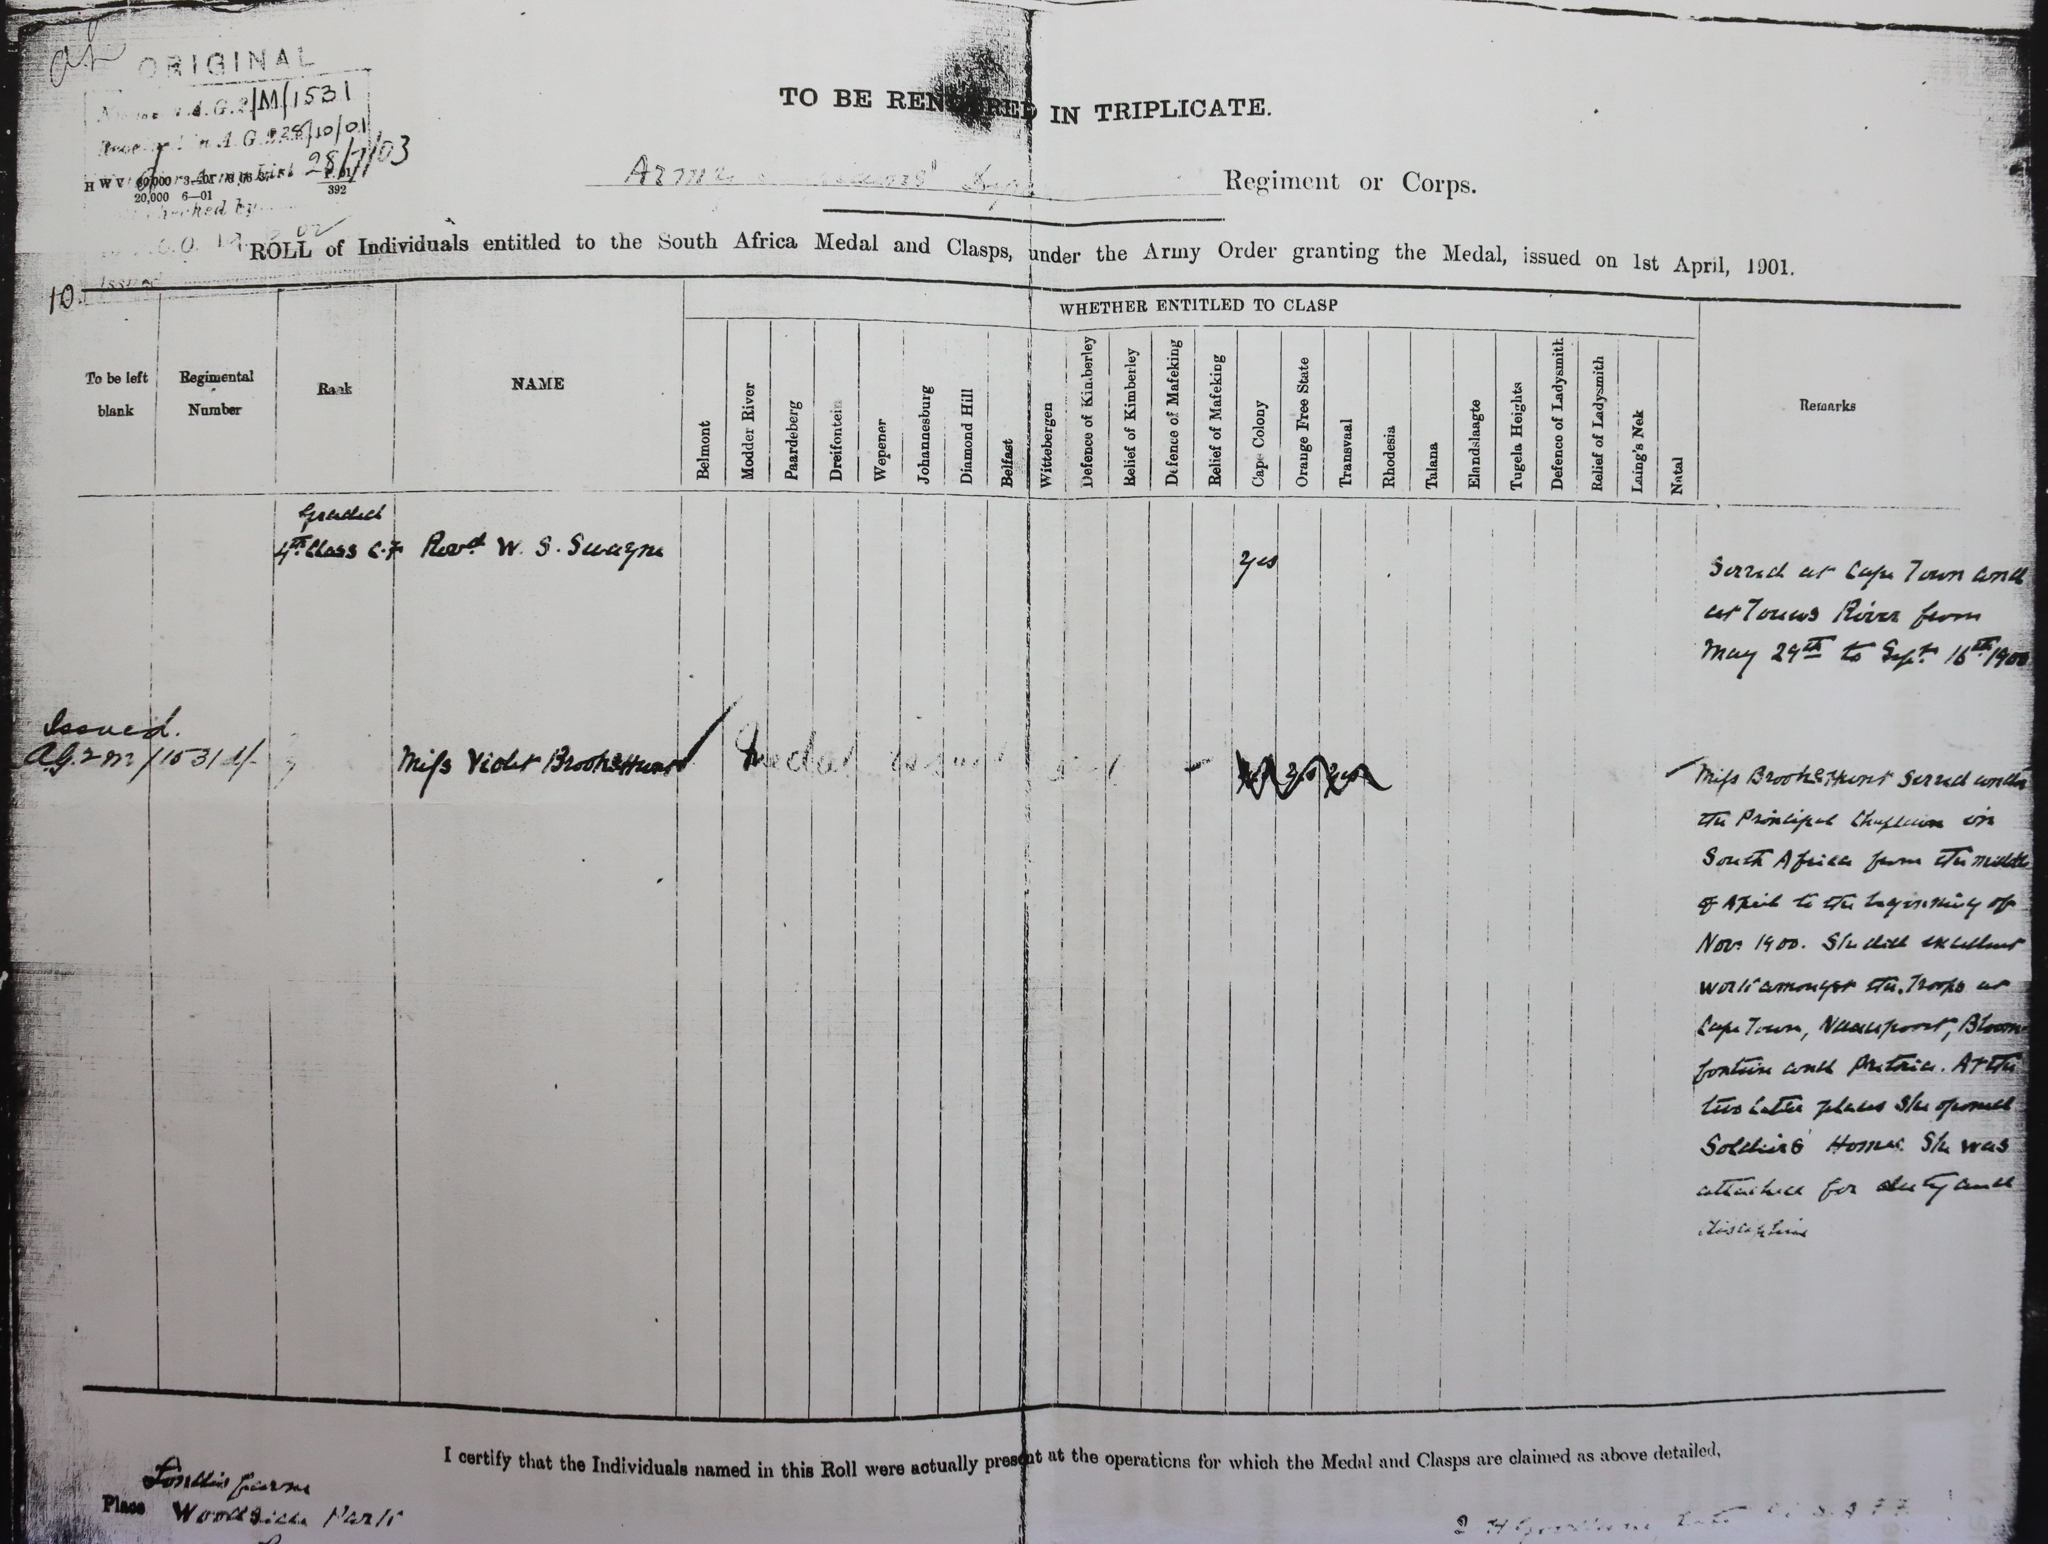 ORIGINAL
A.G.2/M/1531
A.G.2 28/10/01
28/7/03
H W V
20,000 6—01
392
TO BE RENDERED IN TRIPLICATE.
Army Regiment or Corps.
ROLL of Individuals entitled to the South Africa Medal and Clasps, under the Army Order granting the Medal, issued on 1st April, 1901.
10.
WHETHER ENTITLED TO CLASP
To be left blank
Regimental Number
Rank
NAME
Belmont
Modder River
Paardeberg
Dreifontein
Wepener
Johannesburg
Diamond Hill
Belfast
Wittebergen
Defence of Kimberley
Relief of Kimberley
Defence of Mafeking
Relief of Mafeking
Cape Colony
Orange Free State
Transvaal
Rhodesia
Talana
Elandslaagte
Tugela Heights
Defence of Ladysmith
Relief of Ladysmith
Laing's Nek
Natal
Remarks
Graded
4th Class C.F Revd W. S. Swayne yes
Served at Cape Town and
at Touws River from
May 29th to Sept. 16th 1900
Issued.
A.G. 2 M/1531
Miss Violet Brooke Hunt Medal issued
yes yes yes
Miss Brooke Hunt served under
the Principal Chaplain in
South Africa from the middle
of April to the beginning of
Nov. 1900. She did excellent
work amongst the Troops at
Cape Town, Naauwpoort, Bloem-
fontein and Pretoria. At the
two latter places she opened
Soldiers' Homes. She was
attached for duty and
discipline
I certify that the Individuals named in this Roll were actually present at the operations for which the Medal and Clasps are claimed as above detailed,
Place Woodside Park